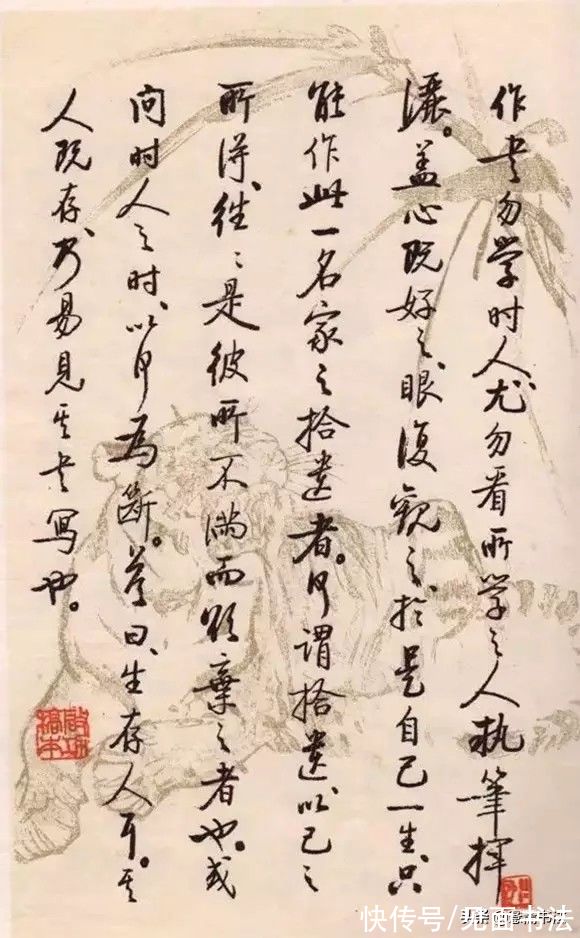 作书勿学时人、尤勿看所学之人执筆揮
灑。盖心既好之、眼復觀之、於是自己一生、只
能作此一名家之拾遺者。何謂拾遺以己之
所得、往往是彼所不滿而欲棄之者也。或
问时人之时、以何为断。答曰、生存人耳。其
人既存、乃易見其书寫也。
快传号/见面书法